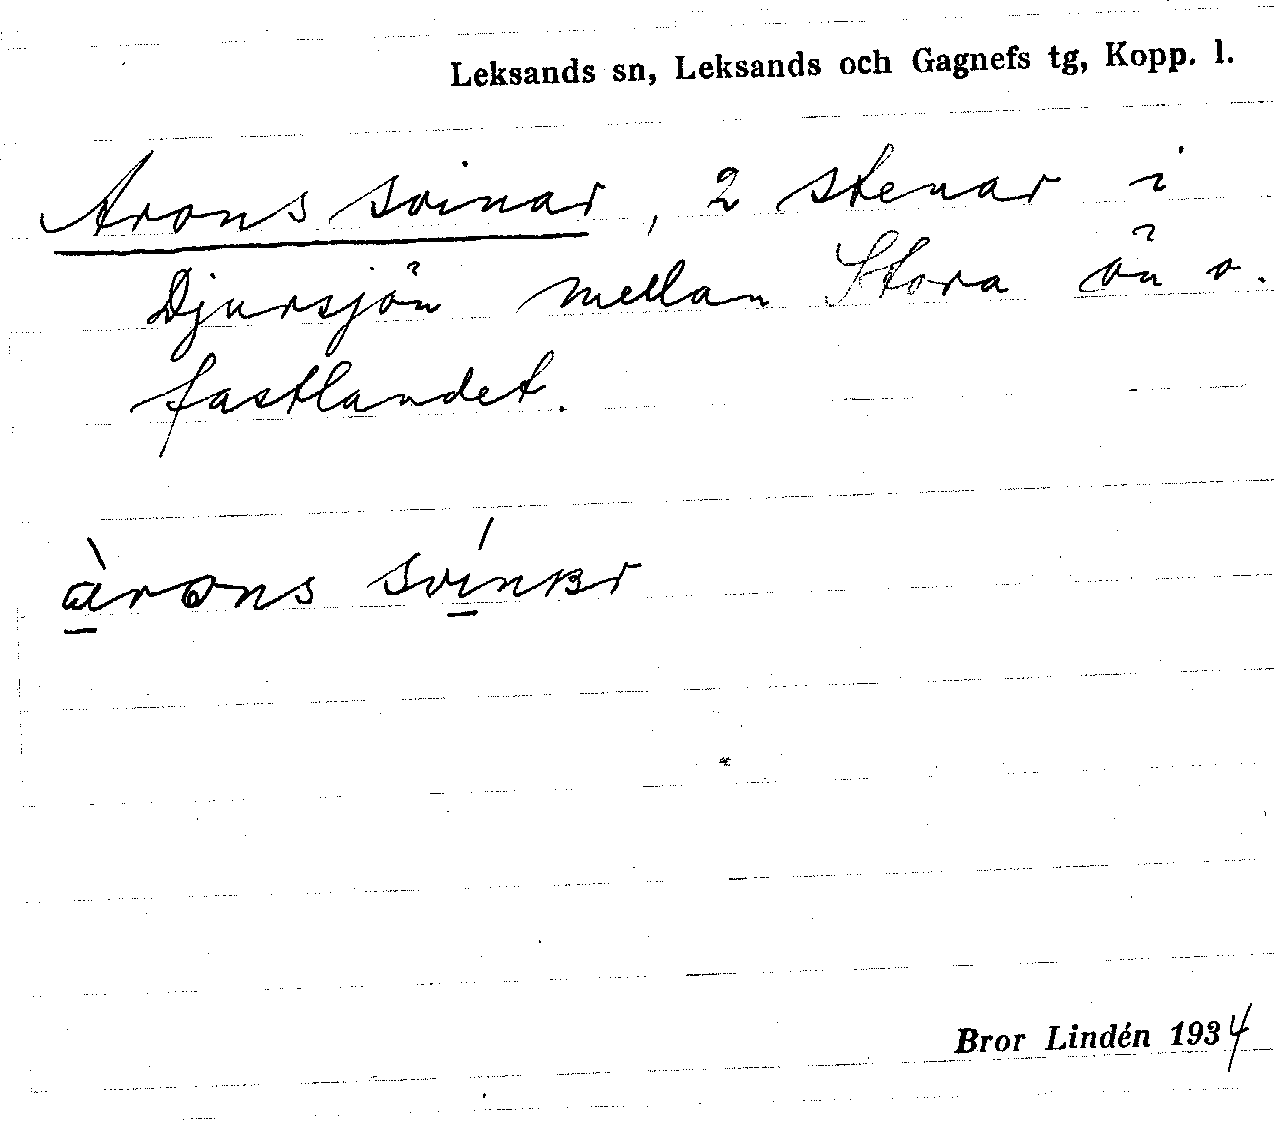 Leksands sn, Leksands och Gagnefs tg, Kopp. l.
Arons svinar, 2 stenar i
Djursjön mellan Stora ön o.
fastlandet.
àrons svínʙr
Bror Lindén 1934